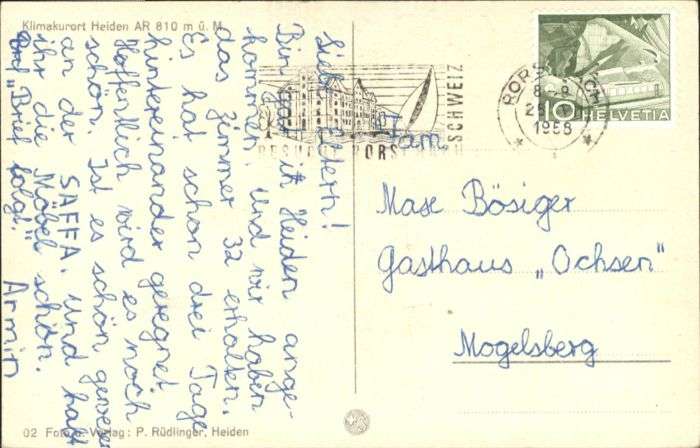 Klimakurort Heiden AR 810 m ü. M.
Liebe Eltern!
Bin gut in Heiden ange-
kommen, und wir haben
das Zimmer 32 erhalten.
Es hat schon drei Tage
hintereinander geregnet.
Hoffentlich wird es noch
schön. Ist es schön gewesen
an der SAFFA. und hat
ihr die Möbel schön.
"Brief folgt."
Armin
02 Foto u. Verlag: P. Rüdlinger, Heiden
BESUCHT RORSCHACH
SCHWEIZ
RORSCHACH
1958
10 HELVETIA
Fam.
Mase Bösiger
Gasthaus „Ochsen"
Mogelsberg